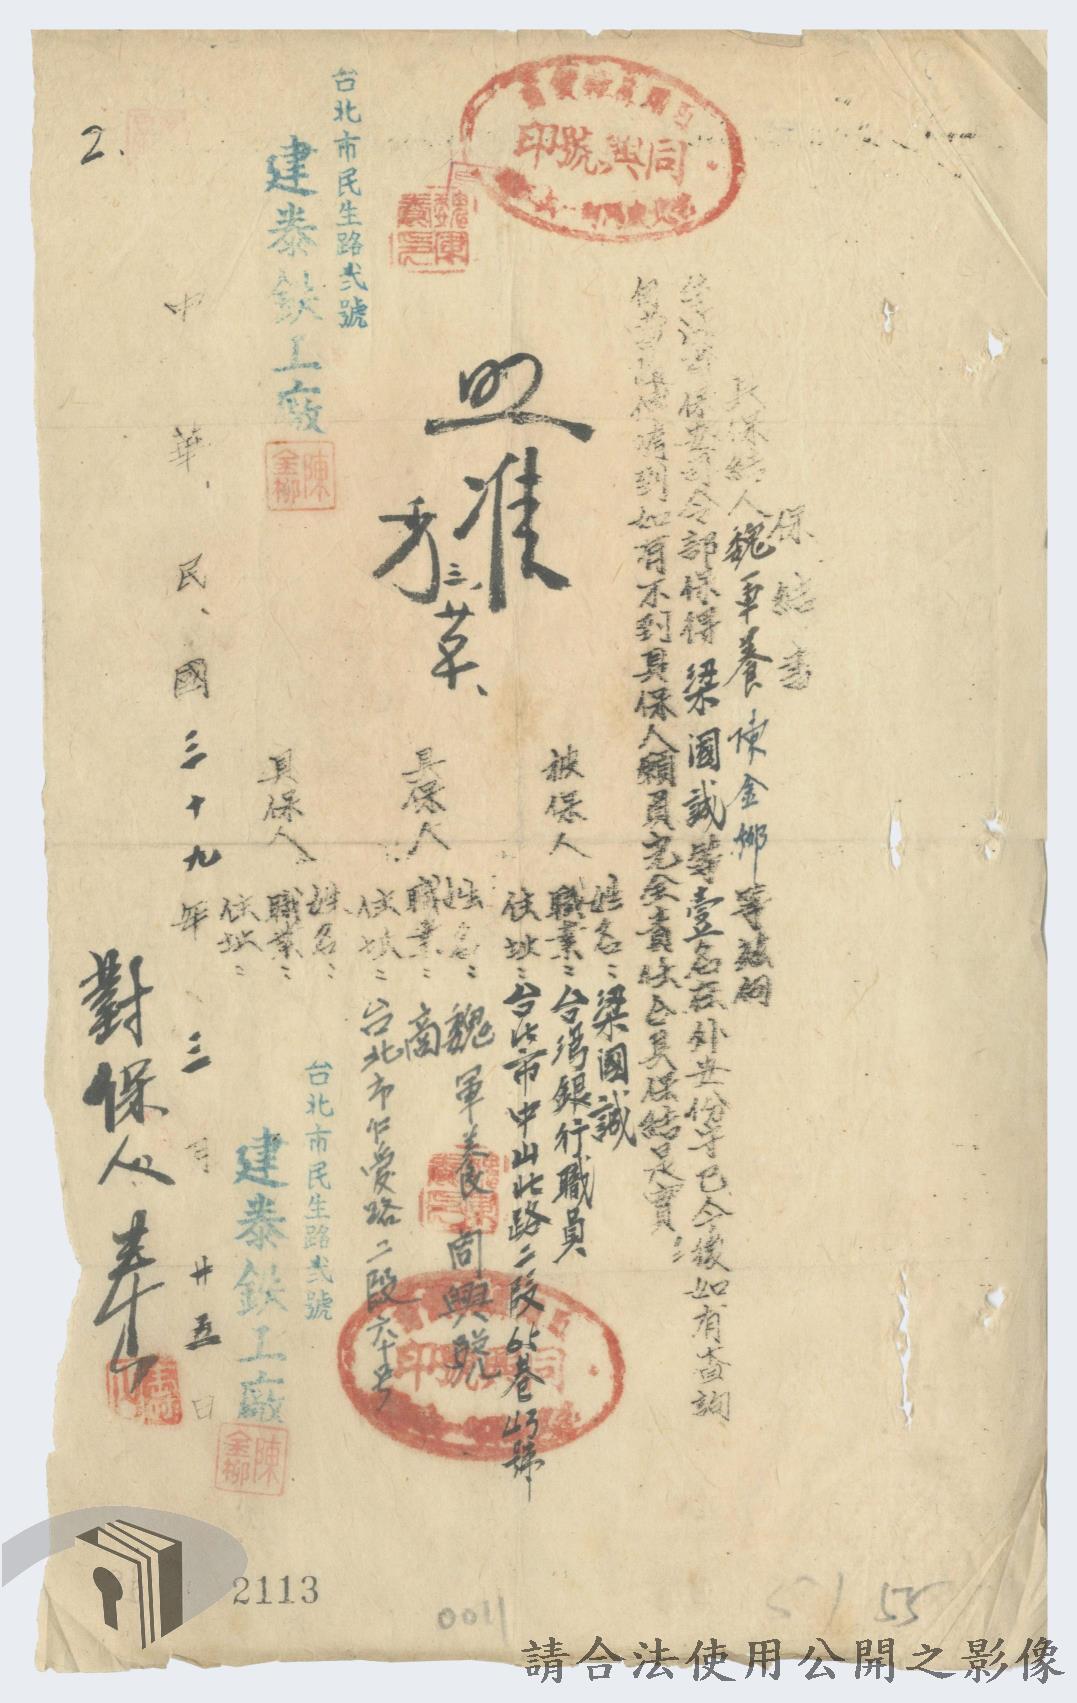 保結書
具保結人魏軍養陳金柳等茲向
台灣省保安司令部保得梁國誠等壹名在外安份守己今後如有查詢
傳到如有不到具保人願負完全責任合具保結是實
被保人
姓名：梁國誠
職業：台灣銀行職員
住址：台北市中山北路二段65巷43號
具保人
姓名：魏軍養 同興號
職業：商
住址：台北市仁愛路二段六十号
具保人
姓名：
職業：
住址：
台北市民生路弍號
建泰鉄工廠
陳金柳
中華民國三十九年三月廿五日
對保人
照准
台北市民生路弍號
建泰鉄工廠
陳金柳
同興號印
同興號印
魏軍養印
2.
2113
0011
51 55
請合法使用公開之影像